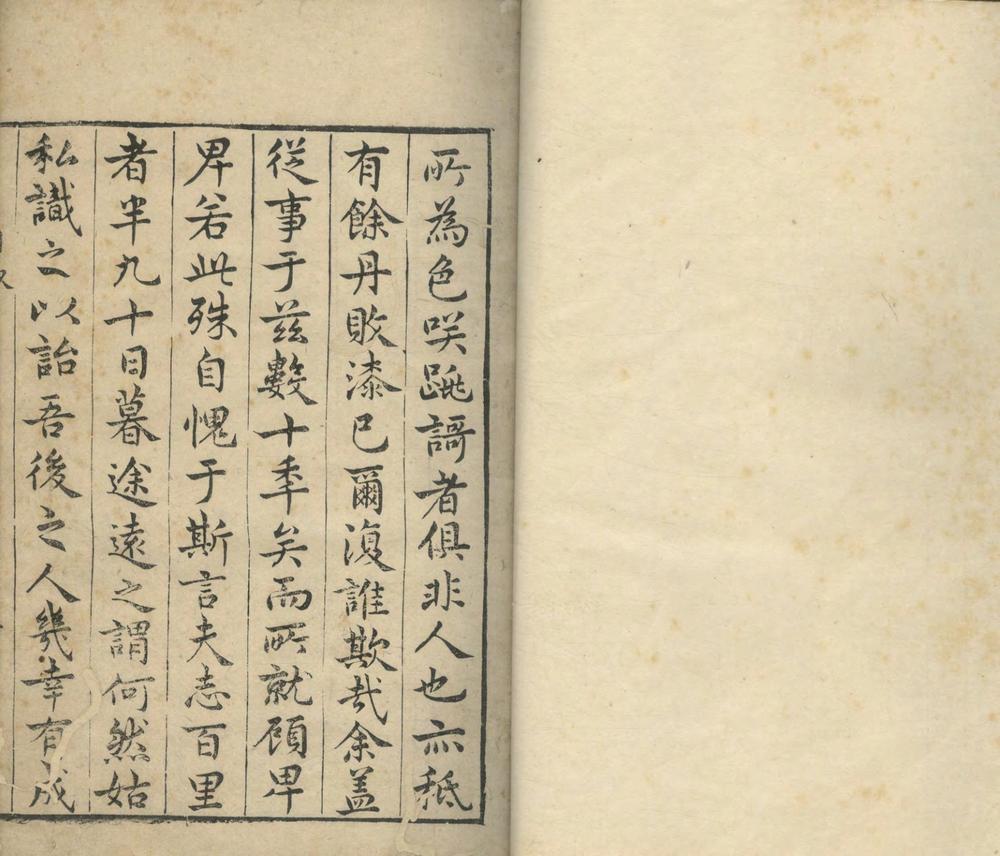 所為色咲跳謌者俱非人也亦秪
有餘丹敗漆已爾復誰欺哉余盖
從事于茲數十季矣而所就頋卑
卑若此殊自愧于斯言夫志百里
者半九十日暮途遠之謂何然姑
私識之以詒吾後之人幾幸有成